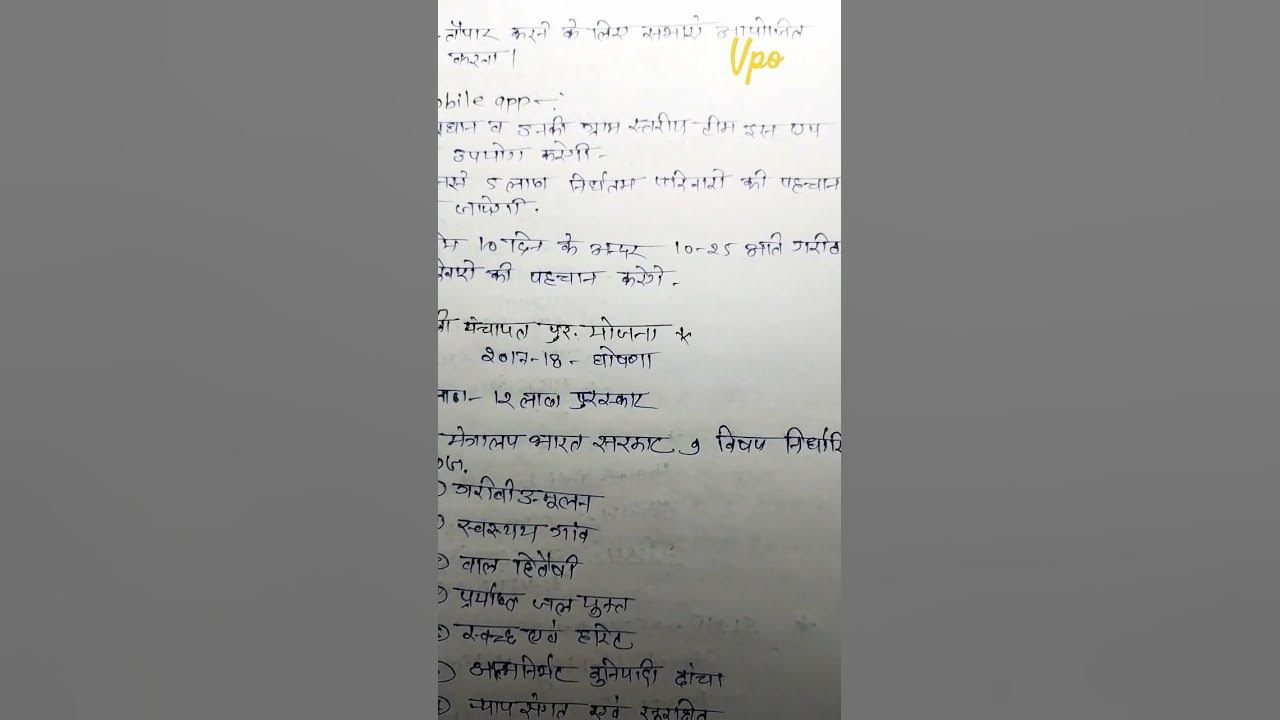 तैयार करने के लिए सभाऐ आयोजित
Vpo
करना।
obile app-:
प्रधान व उनकी ग्राम स्तरीय टीम इस एप
उपयोग करेगी -
5 लाख निर्धनतम परिवारो की पहचान
जायेगी.
10 दिन के अन्दर 10-25 अति गरीब
की पहचान करेगे.
पंचायत पुर. योजना *
2017-18 - घोषणा
12 लाख पुरस्कार
मंत्रालय भारत सरकार 9 विषय निर्धारि
गरीबी उन्मूलन
स्वस्थय गांव
बाल हितैषी
प्रर्याप्त जल युक्त
स्वच्छ एवं हरित
आत्मनिर्भर बुनियादी ढांचा
न्याय संगत एवं सुरक्षित